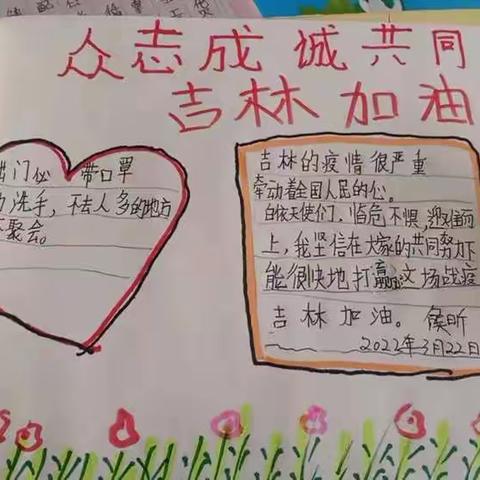 众志成 诚共同
吉林加油
出门必 带口罩
洗手，不去人多的地方
聚会。
吉林的疫情很严重
牵动着全国人民的心。
白衣天使们，临危不惧，迎难而
上，我坚信在大家的共同努力下
能很快地打赢这场战疫
吉林加油。侯昕
2022年3月22日